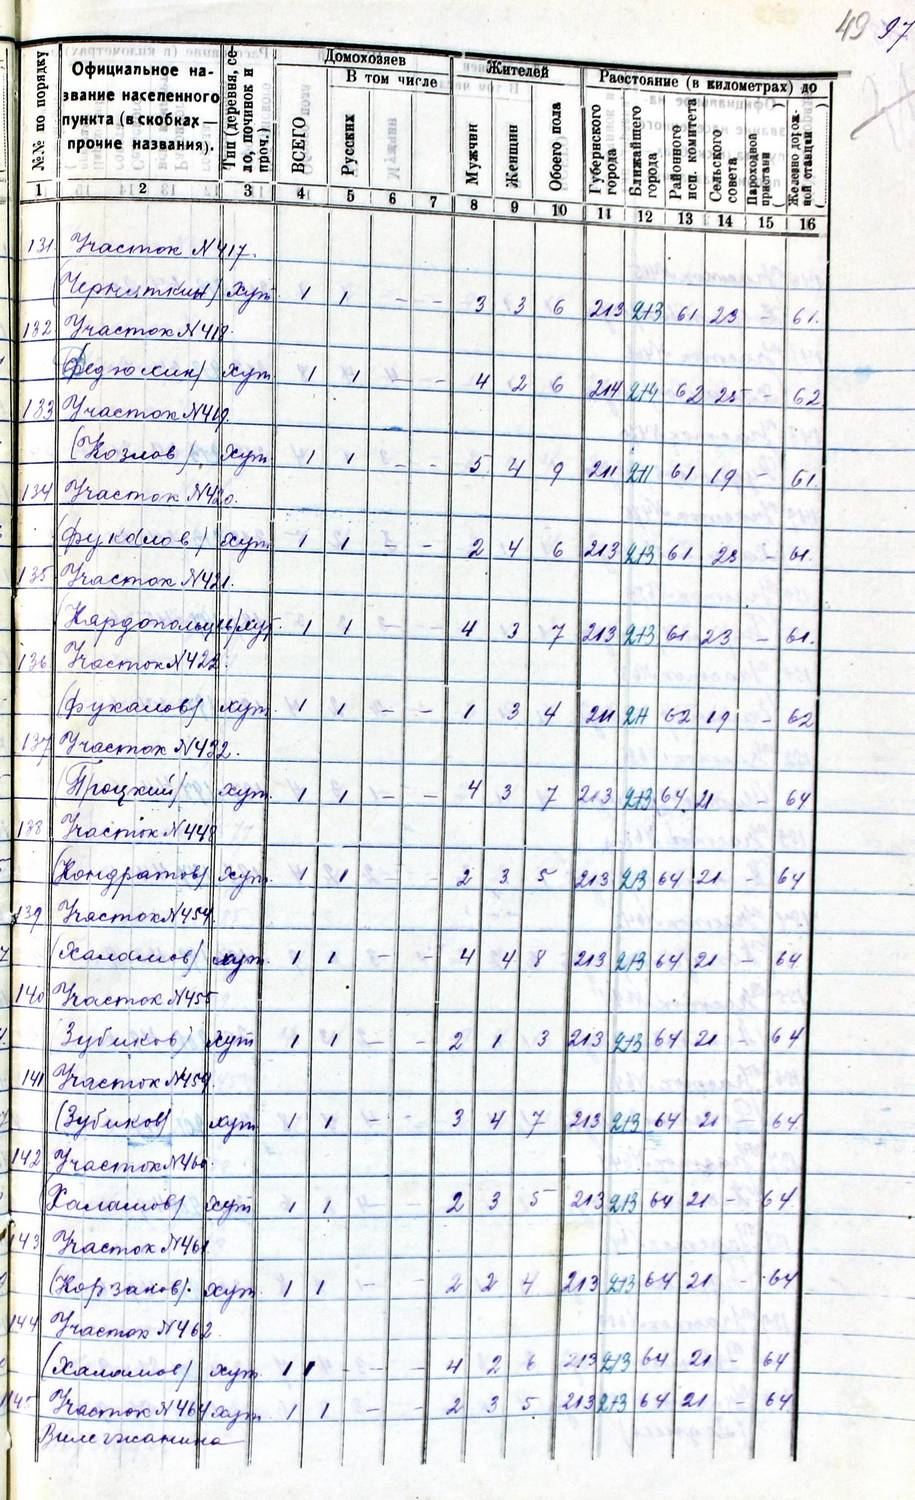 49 97
№№ по порядку
Официальное на-
звание населенного
пункта (в скобках —
прочие названия).
Тип (деревня, се-
ло, починок и
проч.)
Домохозяев
ВСЕГО
В том числе
Русских
Жителей
Мужчин
Женщин
Обоего пола
Расстояние (в километрах) до
Губернского
города
Ближайшего
города
Районного
исп. комитета
Сельского
совета
Пароходной
пристани
Железно дорож-
ной станции
1 2 3 4 5 6 7 8 9 10 11 12 13 14 15 16
131 Участок N 417.
(Черняткин) хут. 1 1 - - 3 3 6 213 213 61 23 - 61.
132 Участок N 418.
(Федюскин) хут 1 1 - - 4 2 6 214 214 62 25 - 62
133 Участок N 419.
(Козлов) хут 1 1 - - 5 4 9 211 211 61 19 - 61.
134 Участок N 420.
(Фукалов) хут 1 1 - - 2 4 6 213 213 61 23 - 61.
135 Участок N 421.
(Кардопольцев) хут. 1 1 - - 4 3 7 213 213 61 23 - 61.
136 Участок N 422
(Фукалов) хут. 1 1 - - 1 3 4 211 211 62 19 - 62
137 Участок N 432.
(Троцкий) хут. 1 1 - - 4 3 7 213 213 64 21 - 64
138 Участок N 448
(Кондратов) хут. 1 1 - - 2 3 5 213 213 64 21 - 64
139 Участок N 454
(Халамов) хут. 1 1 - - 4 4 8 213 213 64 21 - 64
140 Участок N 455
(Зубиков) хут 1 1 - - 2 1 3 213 213 64 21 - 64
141 Участок N 459.
(Зубиков) хут 1 1 - - 3 4 7 213 213 64 21 - 64
142 Участок N 460
(Халамов) хут 1 1 - - 2 3 5 213 213 64 21 - 64.
143 Участок N 461
(Корзанов). хут. 1 1 - - 2 2 4 213 213 64 21 - 64
144 Участок N 462.
(Халамов) хут. 1 1 - - 4 2 6 213 213 64 21 - 64
145 Участок N 464 хут. 1 1 - - 2 3 5 213 213 64 21 - 64
Вилегжанина